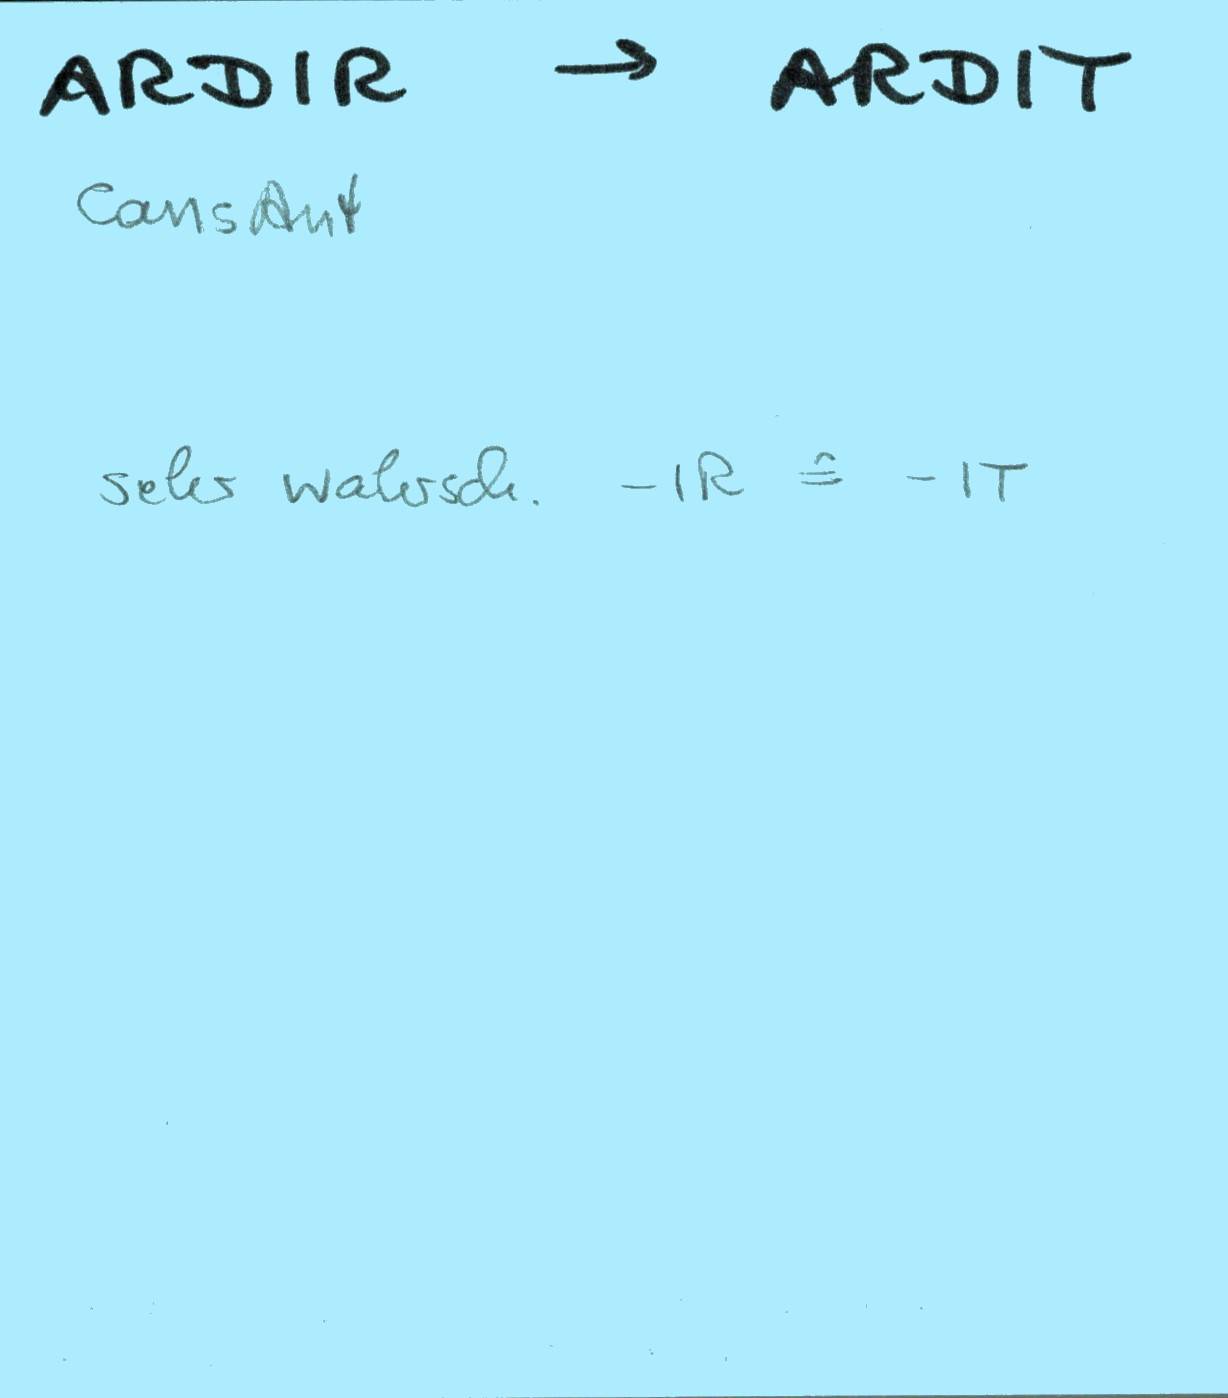 ARDIR → ARDIT
CansAut
sehr wahrsch. -IR ≙ -IT